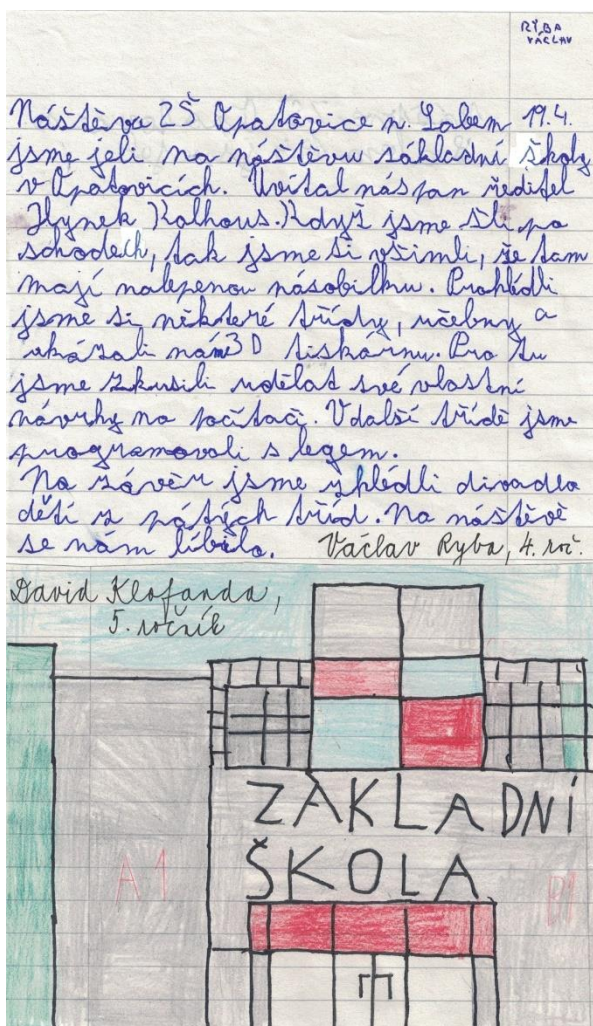 RYBA
VÁCLAV
Náštěva ZŠ Opatovice n. Labem 19.4.
jsme jeli na náštěvu základní školy
v Opatovicích. Uvítal nás pan ředitel
Hynek Kalhous. Když jsme šli po
schodech, tak jsme si všimli, že tam
mají nalepenou násobilku. Prohlédli
jsme si některé třídy, učebny a
ukázali nám 3D tiskárnu. Pro tu
jsme zkusili udělat své vlastní
návrhy na počítači. V další třídě jsme
programovali s legem.
Na závěr jsme zhlédli divadlo
dětí z pátých tříd. Na náštěvě
se nám líbilo. Václav Ryba, 4. roč.
David Klofanda,
5. ročník
ZÁKLADNÍ
ŠKOLA
A1
B1